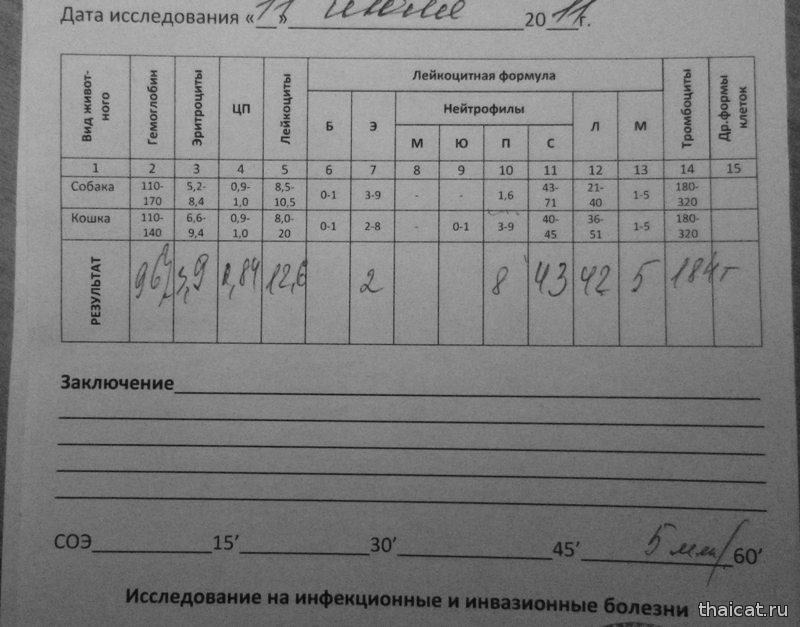 Дата исследования «11» июля 2011г.
Вид живот-
ного
Гемоглобин
Эритроциты
ЦП
Лейкоциты
Лейкоцитная формула
Тромбоциты
Др.формы
клеток
Б Э Нейтрофилы Л М
М Ю П С
1 2 3 4 5 6 7 8 9 10 11 12 13 14 15
Собака 110-170 5,2-8,4 0,9-1,0 8,5-10,5 0-1 3-9 - - 1,6 43-71 21-40 1-5 180-320
Кошка 110-140 6,6-9,4 0,9-1,0 8,0-20 0-1 2-8 - 0-1 3-9 40-45 36-51 1-5 180-320
РЕЗУЛЬТАТ 12,6 2 8 43 42 5
Заключение
СОЭ 15′ 30′ 45′ 5 мм/ 60′
Исследование на инфекционные и инвазионные болезни
thaicat.ru